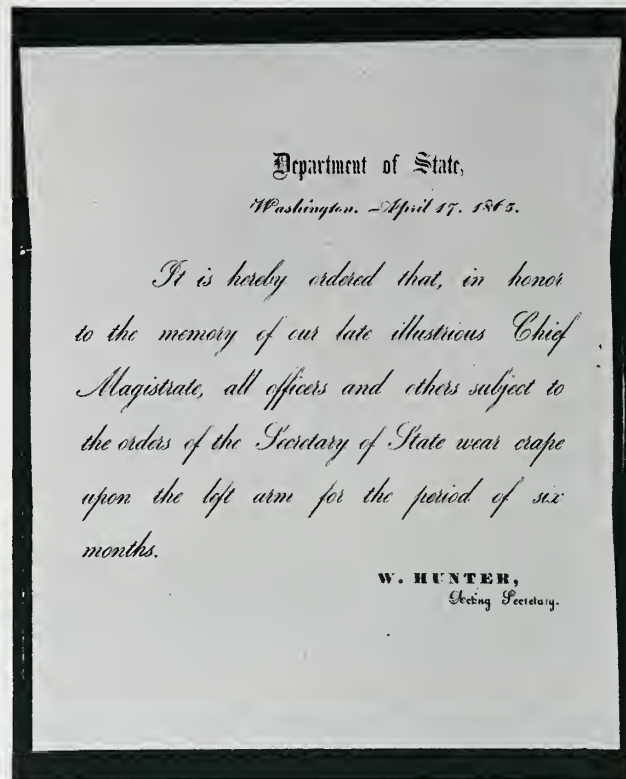 Department of State,
Washington. April 17. 1865.
It is hereby ordered that, in honor
to the memory of our late illustrious Chief
Magistrate, all officers and others subject to
the orders of the Secretary of State wear crape
upon the left arm for the period of six
months.
W. HUNTER,
Acting Secretary.